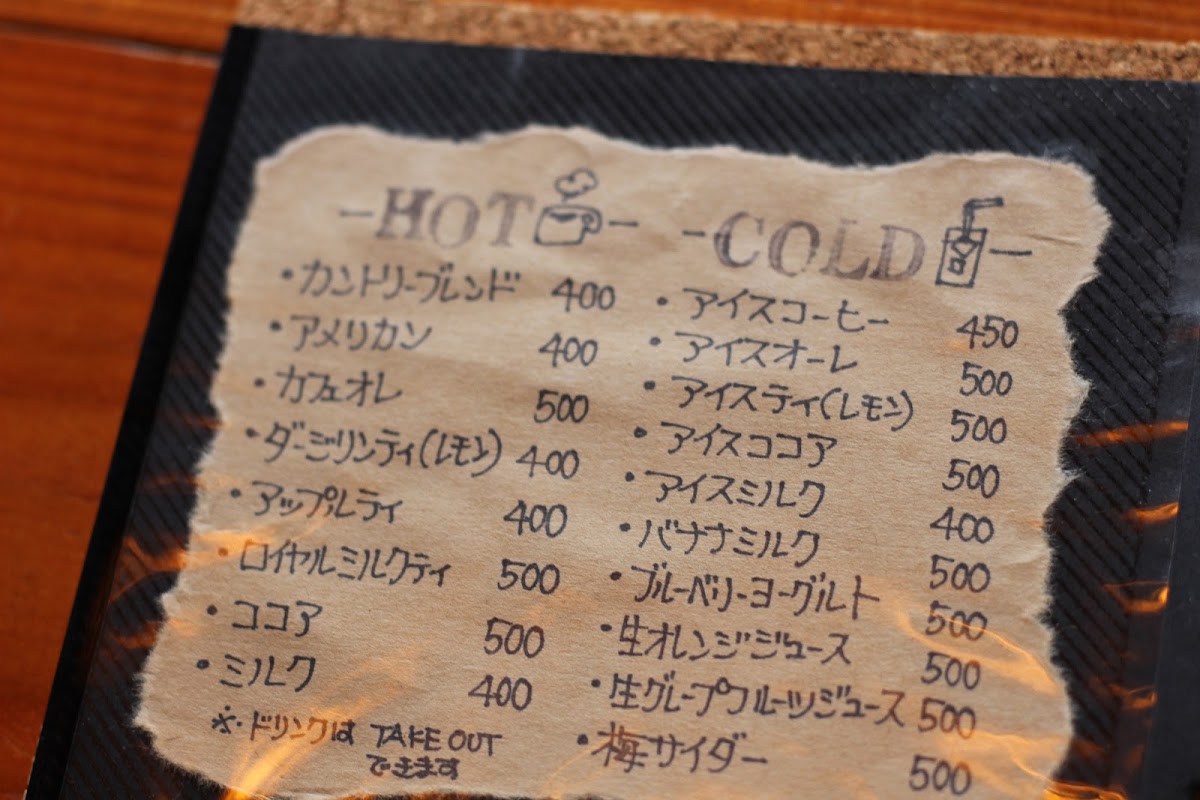 -HOT-
・カントリーブレンド 400
・アメリカン 400
・カフェオレ 500
・ダージリンティ(レモン) 400
・アップルティ 400
・ロイヤルミルクティ 500
・ココア 500
・ミルク 400
※・ドリンクは TAKE OUT
できます
-COLD-
・アイスコーヒー 450
・アイスオーレ 500
・アイスティ(レモン) 500
・アイスココア 500
・アイスミルク 400
・バナナミルク 500
・ブルーベリーヨーグルト 500
・生オレンジジュース 500
・生グレープフルーツジュース 500
・梅サイダー 500